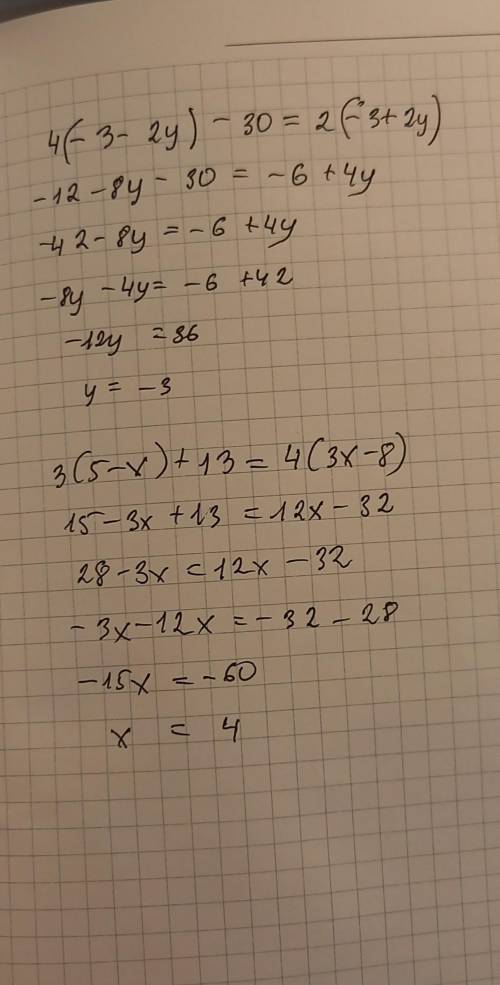 4(-3-2y)-30=2(-3+2y)
-12-8y-30=-6+4y
-42-8y=-6+4y
-8y-4y=-6+42
-12y=36
y=-3
3(5-x)+13=4(3x-8)
15-3x+13=12x-32
28-3x=12x-32
-3x-12x=-32-28
-15x=-60
x=4